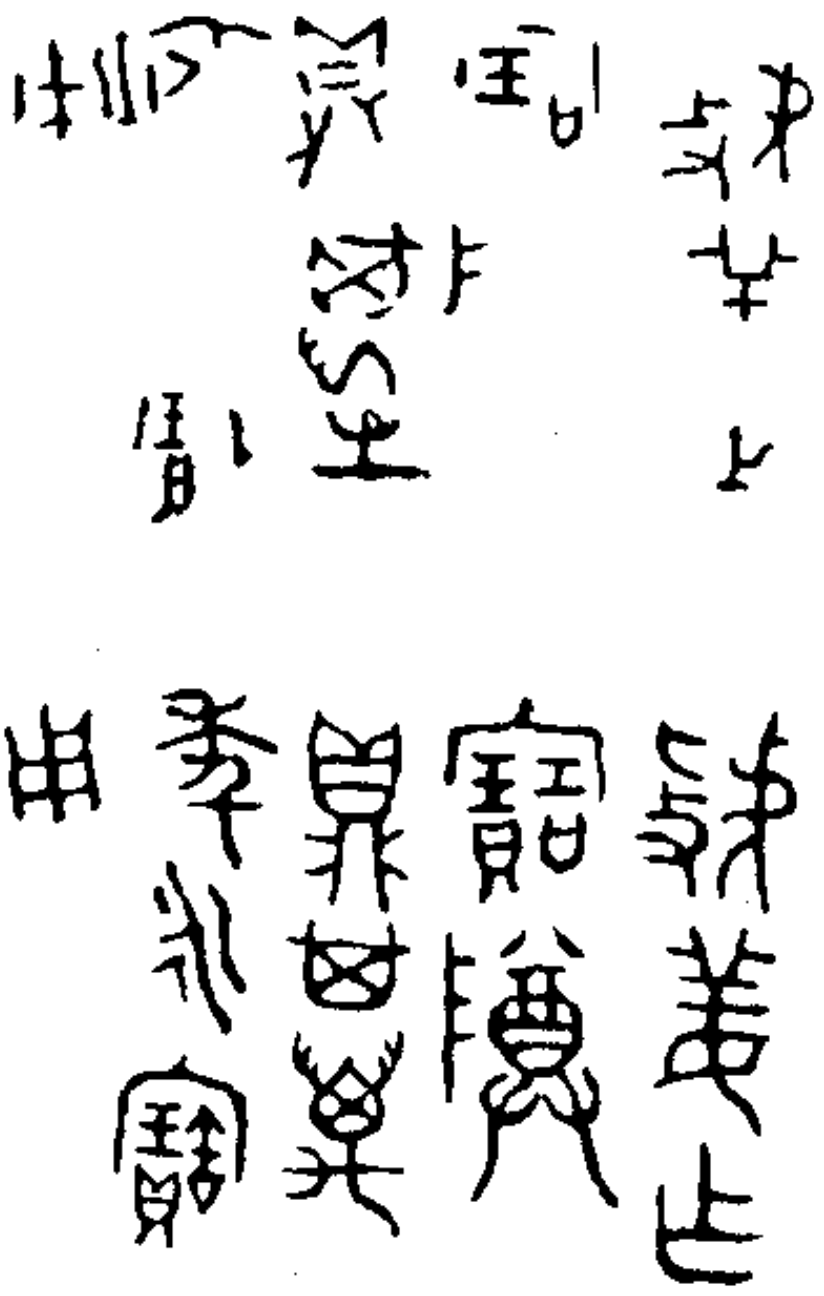 姜乍
寶
鼎其萬
永寶
用
姜乍
寶尊
鼎其萬
年永寶
用